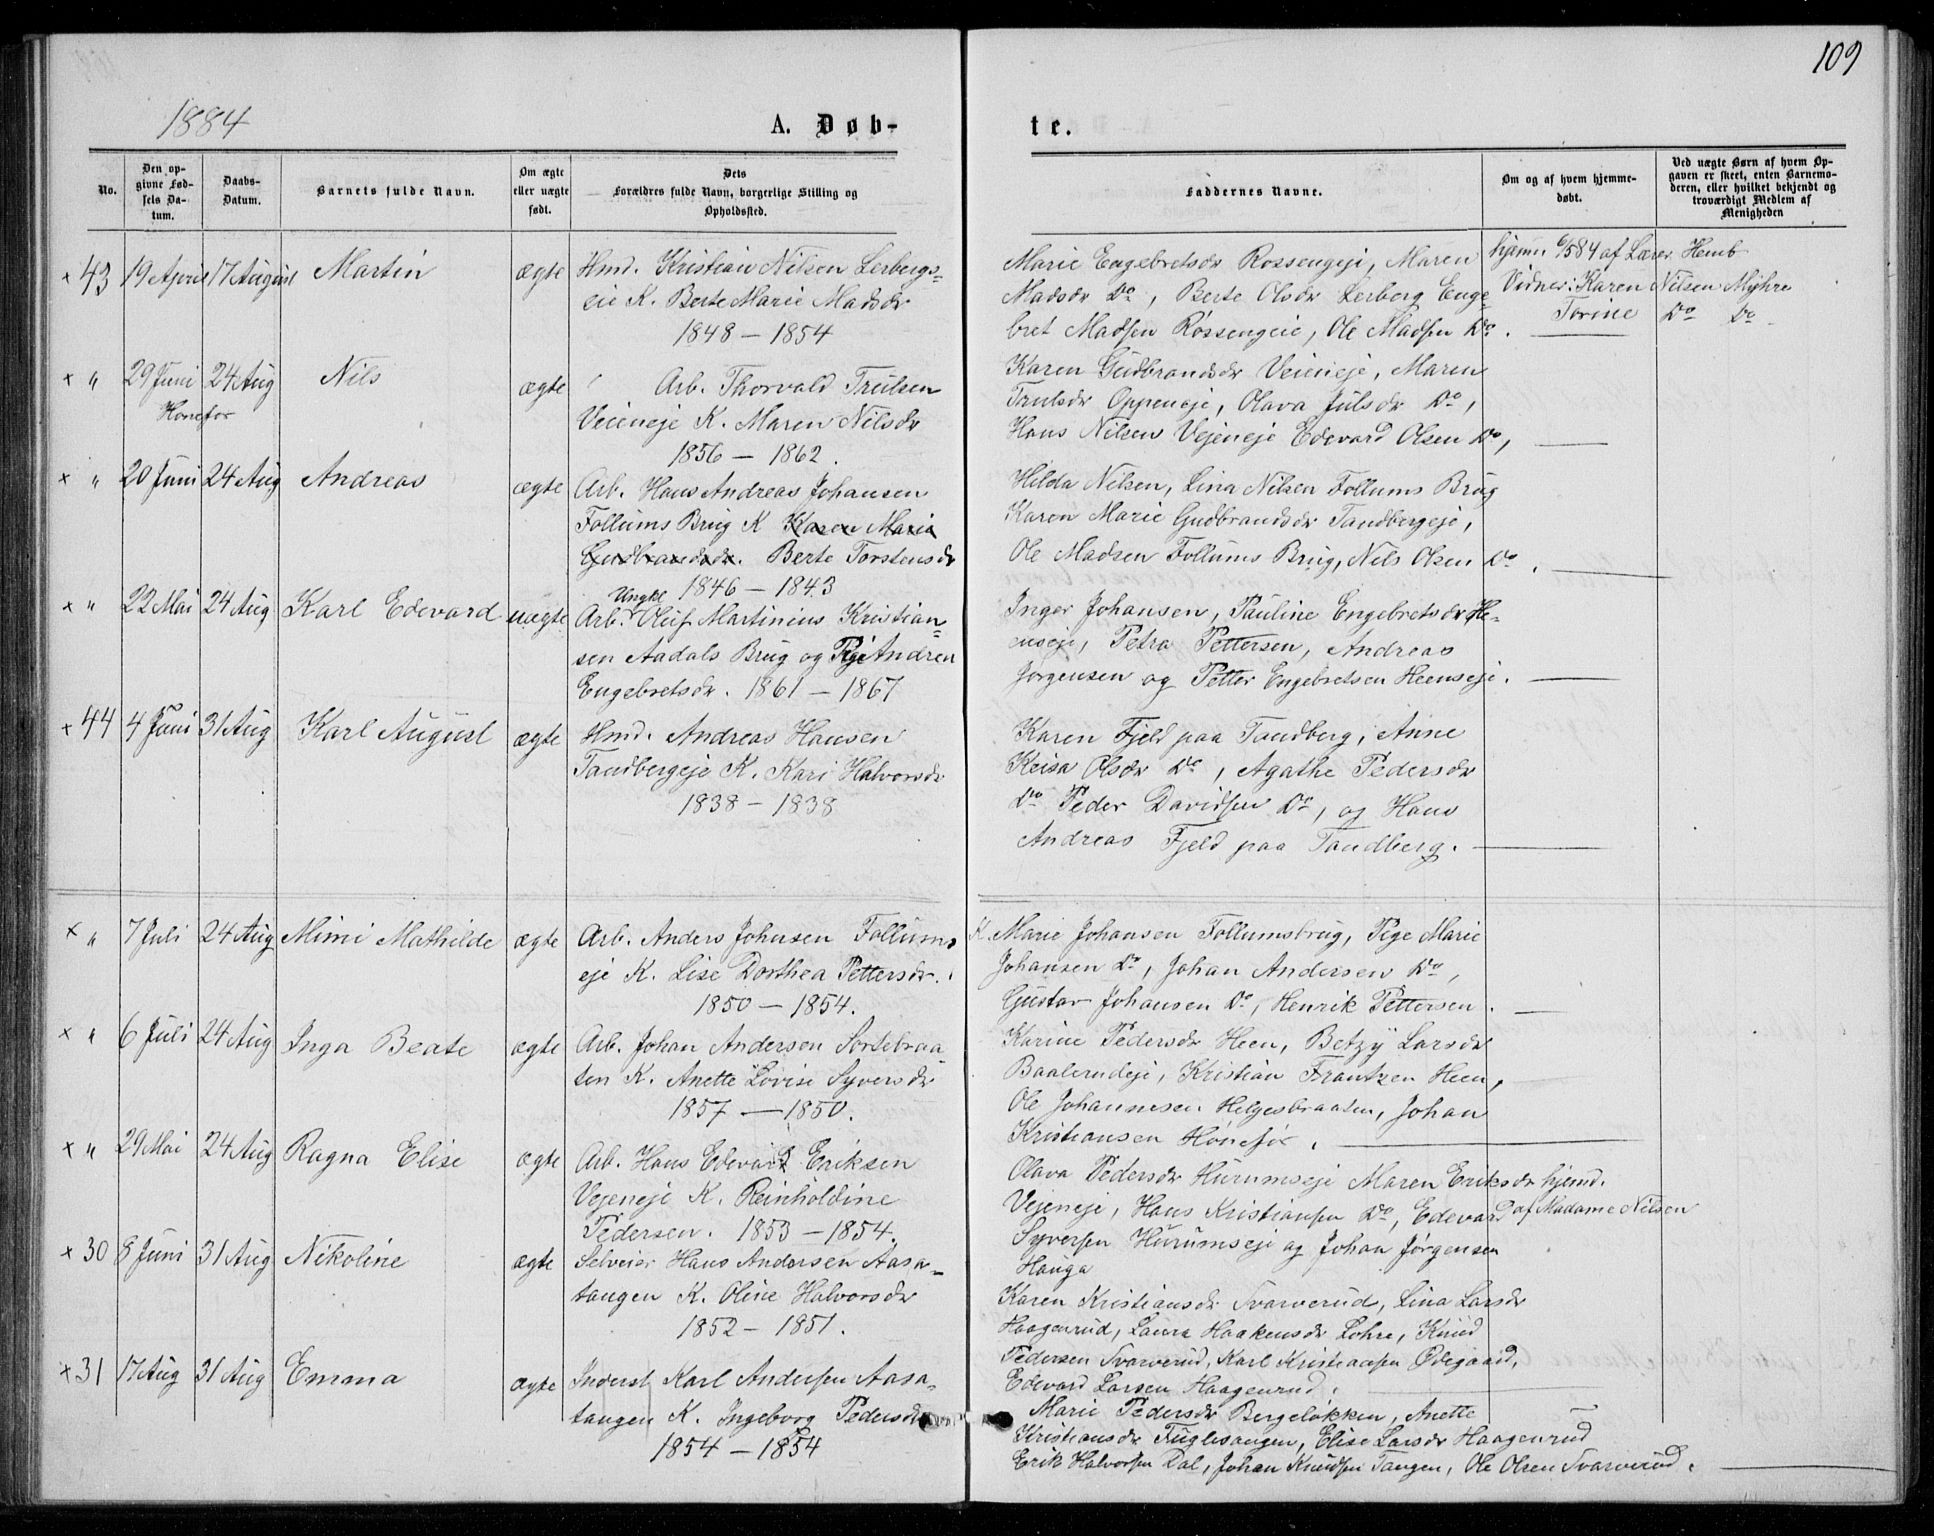 109
1884
A. Døb-
te.
No.
Den op-
givne Fød-
sels Da-
tum.
Daabs-
Datum.
Barnets fulde Navn.
Om ægte
eller uægte
født.
Dets
Forældres fulde Navn, borgerlige Stilling og
Opholdssted.
Faddernes Navne.
Om og af hvem hjemme-
døbt.
Ved uægte Børn af hvem Op-
gaven er skeet, enten Barnemo-
deren, eller hvilket bekjendt og
troværdigt Medlem af
Menigheden
× 43 19 April 17 August Martin ægte Hmd. Kristian Nilsen Lerbergs-
eie K. Berte Marie Madsdr
1848 – 1854
Marie Engebretsdr Rossengeje, Maren
Madsdr Do, Berte Olsdr Lerberg Enge-
bret Madsen Røssengeie, Ole Madsen Do.
hjemn. 6/5 84 af Lærer Hemb
Vidner: Karen Nilsen Myhre
Torine Do Do
× " 29 Juni 24 Aug Nils ægte Arb. Thorvald Trulsen
Hønefos
Veieneje K. Maren Nilsdr
1856 – 1862.
Karen Gudbrandsdr Veieneje, Maren
Trulsdr Oppeneje, Olava Julsdr Do,
Hans Nilsen Vejeneje Edevard Olsen Do,
× " 20 Juni 24 Aug Andreas ægte Arb. Hans Andreas Johansen
Follums Brug K Karen Marie
Gudbrandsdr. Berte Torstensdr
1846 – 1843
Hilda Nilsen, Lina Nilsen Follums Brug
Karen Marie Gudbrandsdr Tandbergeje,
Ole Madsen Follums Brug, Nils Olsen Do.
× " 22 Mai 24 Aug Karl Edevard uægte Ungkl
Arb. Oluf Martinius Kristian-
sen Aadals Brug og Pige Andrea
Engebretsdr. 1861 – 1867
Inger Johansen, Pauline Engebretsdr He-
enseje, Petra Pettersen, Andreas
Jørgensen og Petter Engebretsen Heenseje.
× 44 4 Juni 31 Aug Karl August ægte Hmd. Andreas Hansen
Tandbergeje K. Kari Halvorsdr
1838 – 1838
Karen Fjeld paa Tandberg, Anne
Keisa Olsdr Do, Agathe Pedersdr
Do Peder Davidsen Do, og Hans
Andreas Fjeld paa Tandberg.
× " 7 Juli 24 Aug Mimi Mathilde ægte Arb. Anders Johnsen Follums
eje K. Lise Dorthea Pettersdr.
1850 – 1854.
K. Marie Johansen Follumsbrug, Pige Marie
Johansen Do, Johan Andersen Do,
Gustav Johansen Do, Henrik Pettersen.
× " 6 Juli 24 Aug Inga Beate ægte Arb. Johan Andersen Sortebraa
ten K. Anette Lovise Syversdr
1857 – 1850.
Karine Pedersdr Heen, Betzy Larsdr
Baalerudeje, Kristian Frantzen Heen,
Ole Johannesen Helgesbraaten, Johan
Kristiansen Hønefos.
× " 29 Mai 24 Aug Ragna Elise ægte Arb. Hans Edevard Eriksen
Vejeneje K. Reinholdine
Pedersen. 1853 – 1854.
Olava Pedersdr Hurumseje Maren Eriksdr hjemd.
Vejeneje, Hans Kristiansen Do, Edevard af Madame Nilsen
Syversen Hurumseje og Johan Jørgensen
Hauga
× 30 8 Juni 31 Aug Nikoline ægte Selveier Hans Andersen Aasa-
tangen K. Oline Halvorsdr
1852 – 1851.
Karen Kristiansdr Svarverud, Lina Larsdr
Haagenrud, Laura Haakensdr Lohre, Knud
Pedersen Svarverud, Karl Kristiansen Ødegaard,
Edevard Larsen Haagenrud.
× 31 17 Aug 31 Aug Emma ægte Inderst Karl Andersen Aasa-
tangen K. Ingeborg Pedersdr
1854 – 1854
Marie Pedersdr Bergeløkken, Anette
Kristiansdr Fuglesangen, Elise Larsdr Haagenrud
Erik Halvorsen Dal, Johan Knudsen Tangen, Ole Olsen Svarverud.